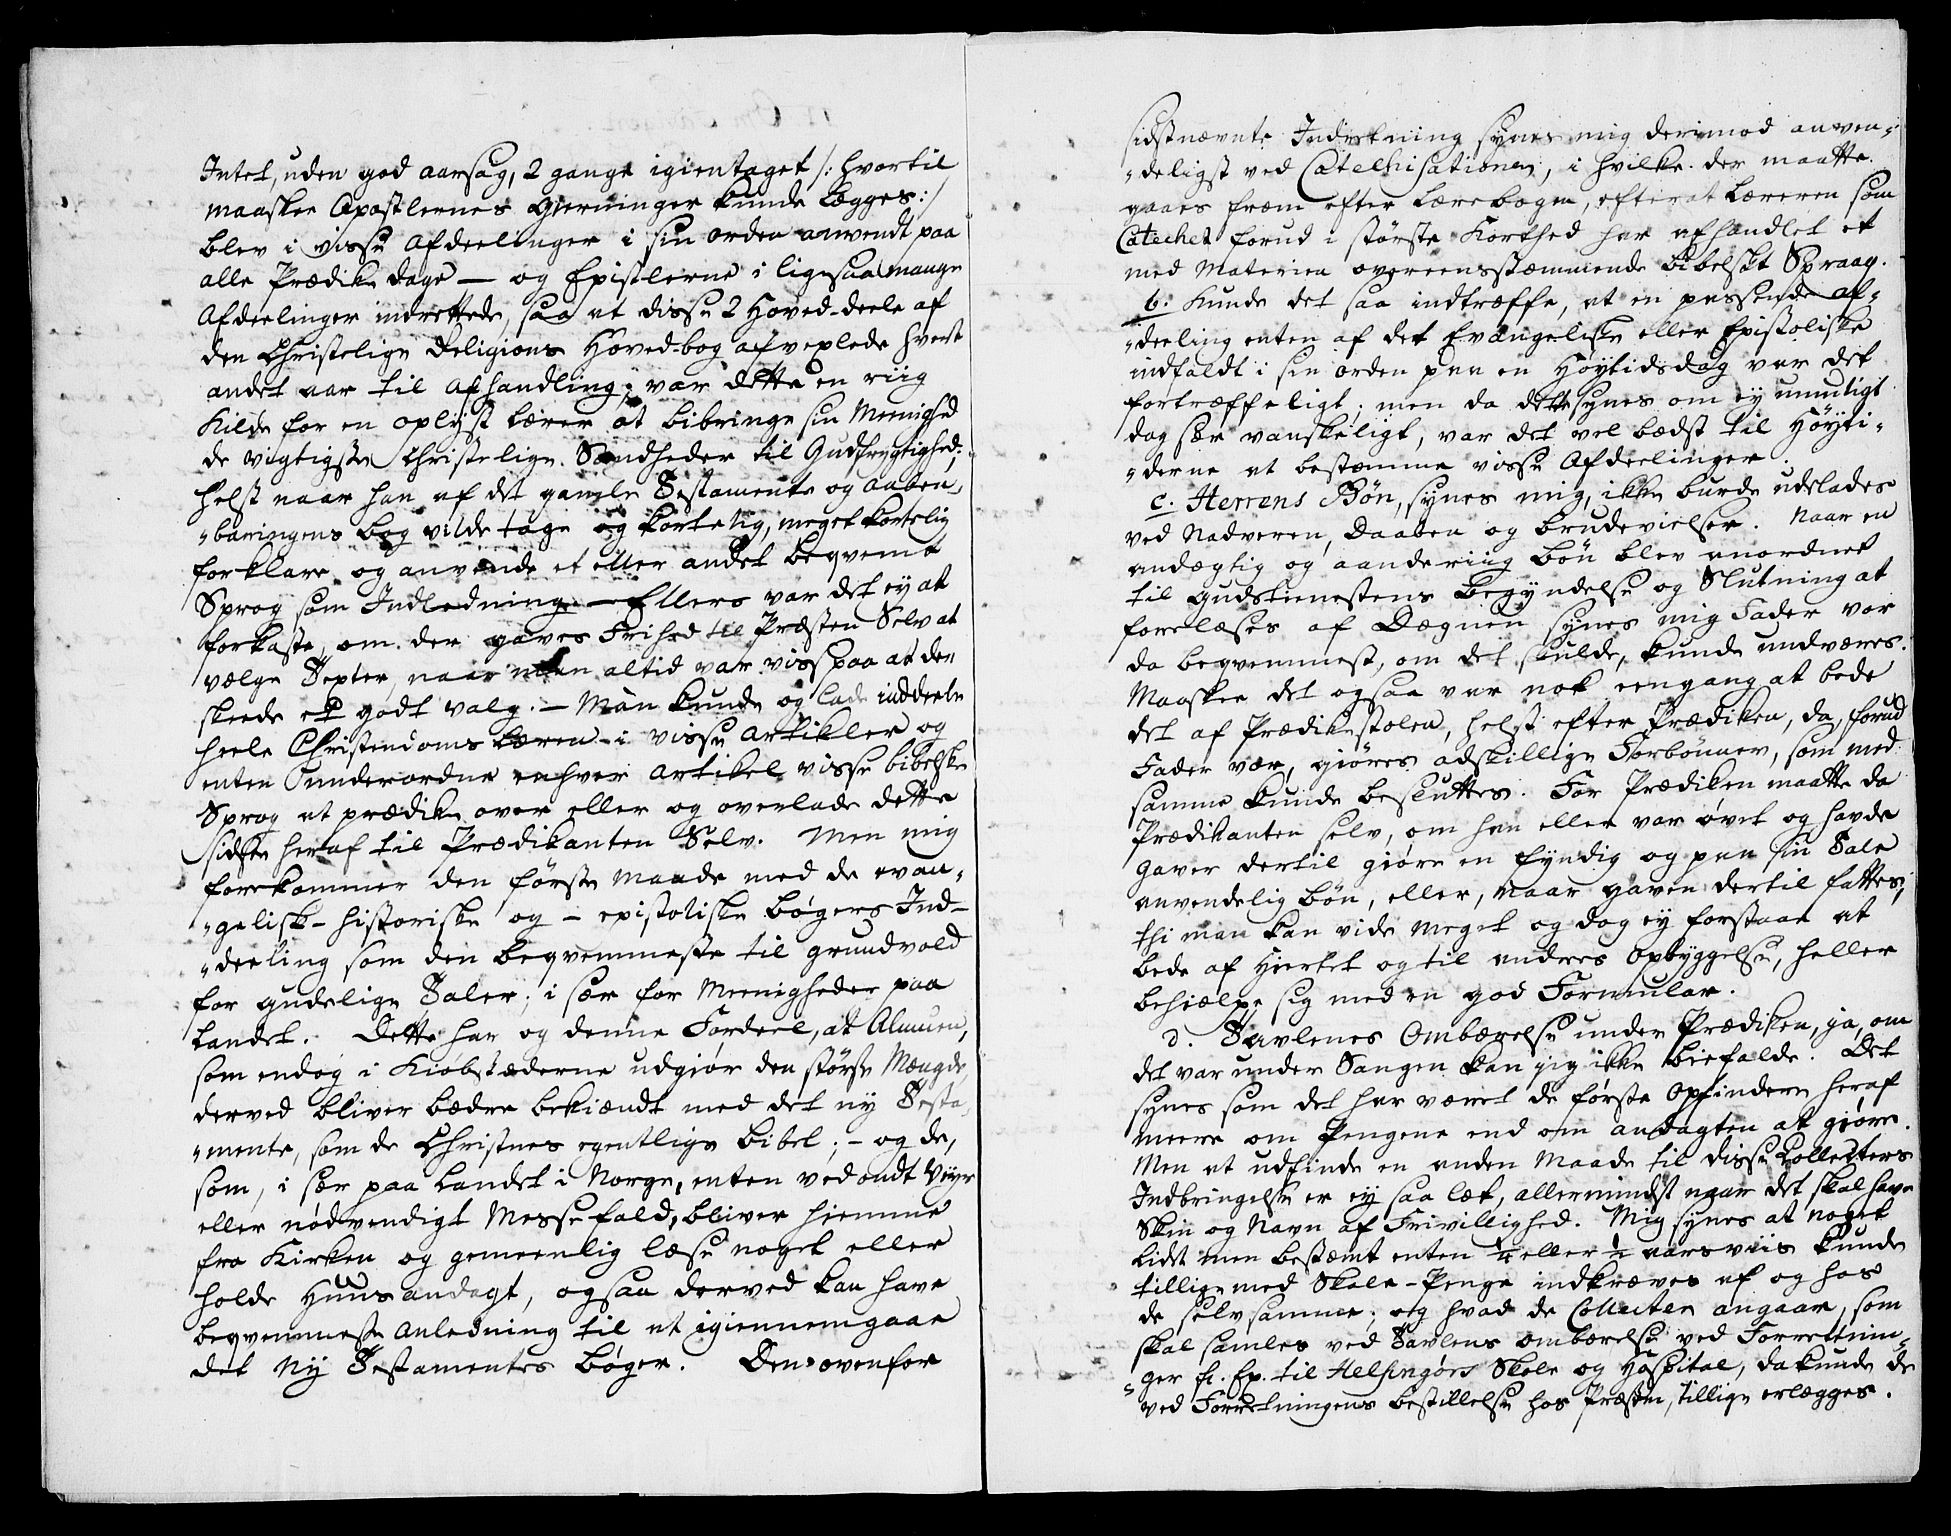 Intet, uden god aarsag, 2 gange igientaget /: hvortil
maaskee Apostlernes Gierninger kunde lægges :/
blev i visse Afdeelinger i sin orden anvendt paa
alle Prædike dage — og Epistlerne i ligesaa mange
Afdeelinger indrettede, saa at disse 2 Hoved-deele af
den Christelige Religions Hoved-bog afvexlede hvert
andet aar til afhandling; var dette en riig
Kilde for en oplyst lærer at bibringe sin Meenighed
de vigtigste Christelige Sandheder til Gudfrygtighed;
helst naar han af det gamle Testamente og aaben„
„baringens bog vilde tage og kortelig, meget kortelig
forklare og anvende et eller andet beqvemt
Sprog som Indledning — Ellers var det ey at
forkaste, om der gaves Frihed til Præsten Selv at
vælge Texter, naar man altid var viss paa at der
skeede et godt valg. — Man kunde og lade inddeele
heele Christendoms læren i visse Artikler og
enten underordne enhver Artikel visse bibelske
Sprog at prædike over eller og overlade dette
sidste heraf til Prædikanten Selv. Men mig
forekommer den første maade med de evan„
„gelisk-historiske og – epistoliske bøgers Ind-
„deeling som den beqvemmeste til grundvold
for gudelige Taler; i sær for Meenigheder paa
Landet. Dette har og denne Fordeel, at Almuen,
som endog i Kiøbstæderne udgiør den største Mængde,
derved bliver bedre bekiendt med det ny Testa„
„mente, som de Christnes egentlige bibel; – og de,
som, i sær paa Landet i Norge, enten ved ondt Veyr
eller nødvendigt Messefald, bliver hiemme
fra Kirken og gemeenlig læse noget eller
holde Huus andagt, ogsaa derved kan have
beqvemmeste Anledning til at igiennemgaae
det Ny Testamentes bøger. Den ovenfor
sidstnævnte Indretning synes mig derimod anven„
„deligst ved Catechisationen, i hvilke der maatte
gaaes frem efter Lærebogen, efterat Læreren som
Catechet forud i største Korthed har afhandlet et
med Materien overeensstemmende bibelskt Spraag.
b. Kunde det saa indtræffe, at en passende af„
„deeling enten af det Evangeliske eller Epistoliske
indfaldt i sin orden paa en Høytidsdag var det
fortræffeligt; men da dette synes om ey umuligt
dog sær vanskeligt, var det vel bedst til Høyti„
„derne at bestemme visse Afdeelinger.
c. Herrens Bøn, synes mig, ikke burde udelades
ved Nadveren, Daaben og brudevielser. Naar en
andægtig og aanderiig bøn blev anordnet
til Gudstienestens begyndelse og Slutning at
forelæses af Degnen synes mig Fader vor
da beqvemmest, om det skulde, kunde undværes.
Maaskee det ogsaa var nok eengang at bede
det af Prædikestolen, helst efter Prædiken, da, forud
Fader vor, giøres adskillige Forbønner, som med
samme kunde besluttes. Før Prædiken maatte da
Prædikanten selv, om han ellers var øvet og havde
Gaver dertil giøre en fyndig og paa sin Tale
anvendelig bøn, eller, naar gaven dertil fattes,
thi man kan vide meget og dog ey forstaae at
bede af Hiertet og til andres Opbyggelse, heller
behielpe sig med en god Formular.
d. Tavlenes Ombærelse under Prædiken, ja, om
det var under Sangen kan jeg ikke biefalde. Det
synes som det har været de første Opfindere heraf
meere om Pengene end om andagten at giøre.
Men at udfinde en anden Maade til disse Collecters
Indbringelse er ey saa let, allermindst naar det skal have
Skin og Navn af Frivillighed. Mig synes at noget
lidet men bestemt enten ¼ eller ½ aarsviis kunde
tillige med Skole-Penge indkræves af og hos
de selvsamme; og hvad de Collecter angaar, som
skal samles ved Tavlens ombærelse ved Forretnin„
„ger f. Ex. til Helsingørs Skole og Hospital, da kunde de
ved Forretningens bestillelse hos Præsten, tillige erlægges.